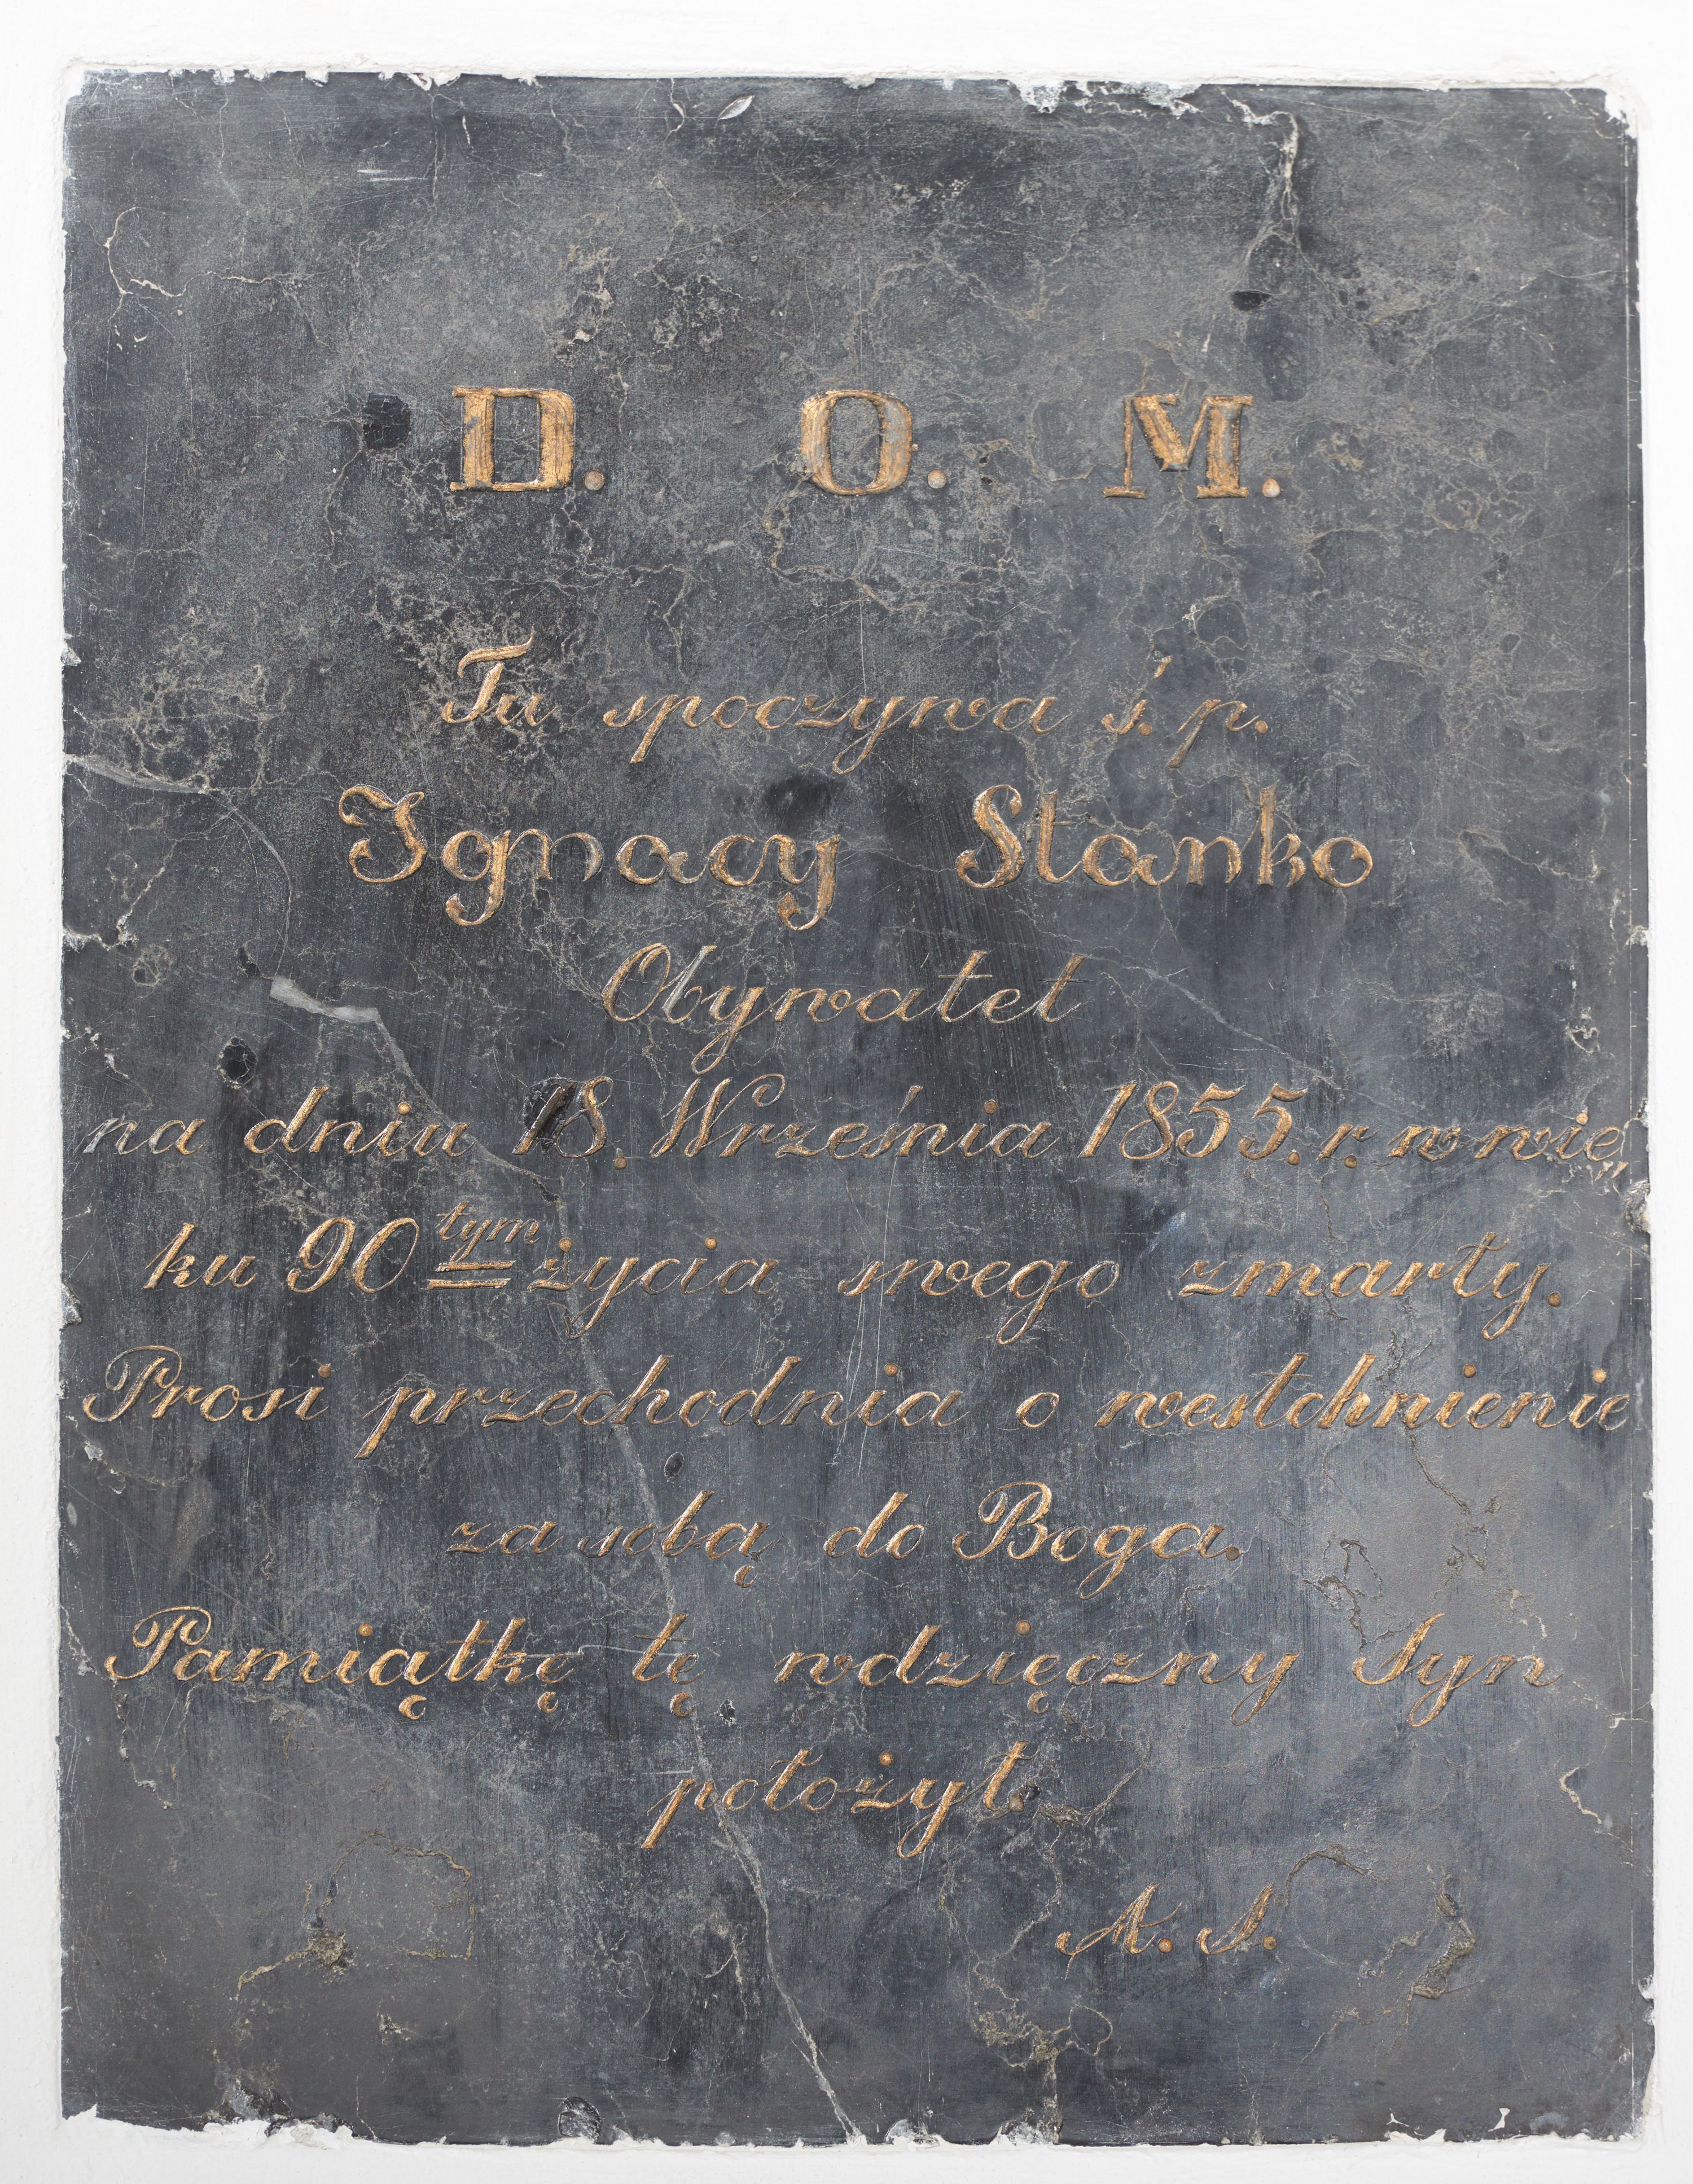 D. O. M.
Tu spoczywa ś. p.
Ignacy Stanko
Obywatel
na dniu 18. Września 1855. r. w wie„
ku 90 tym życia swego zmarły.
Prosi przechodnia o westchnienie
za sobą do Boga.
Pamiątkę tę wdzięczny Syn
położył.
A. S.